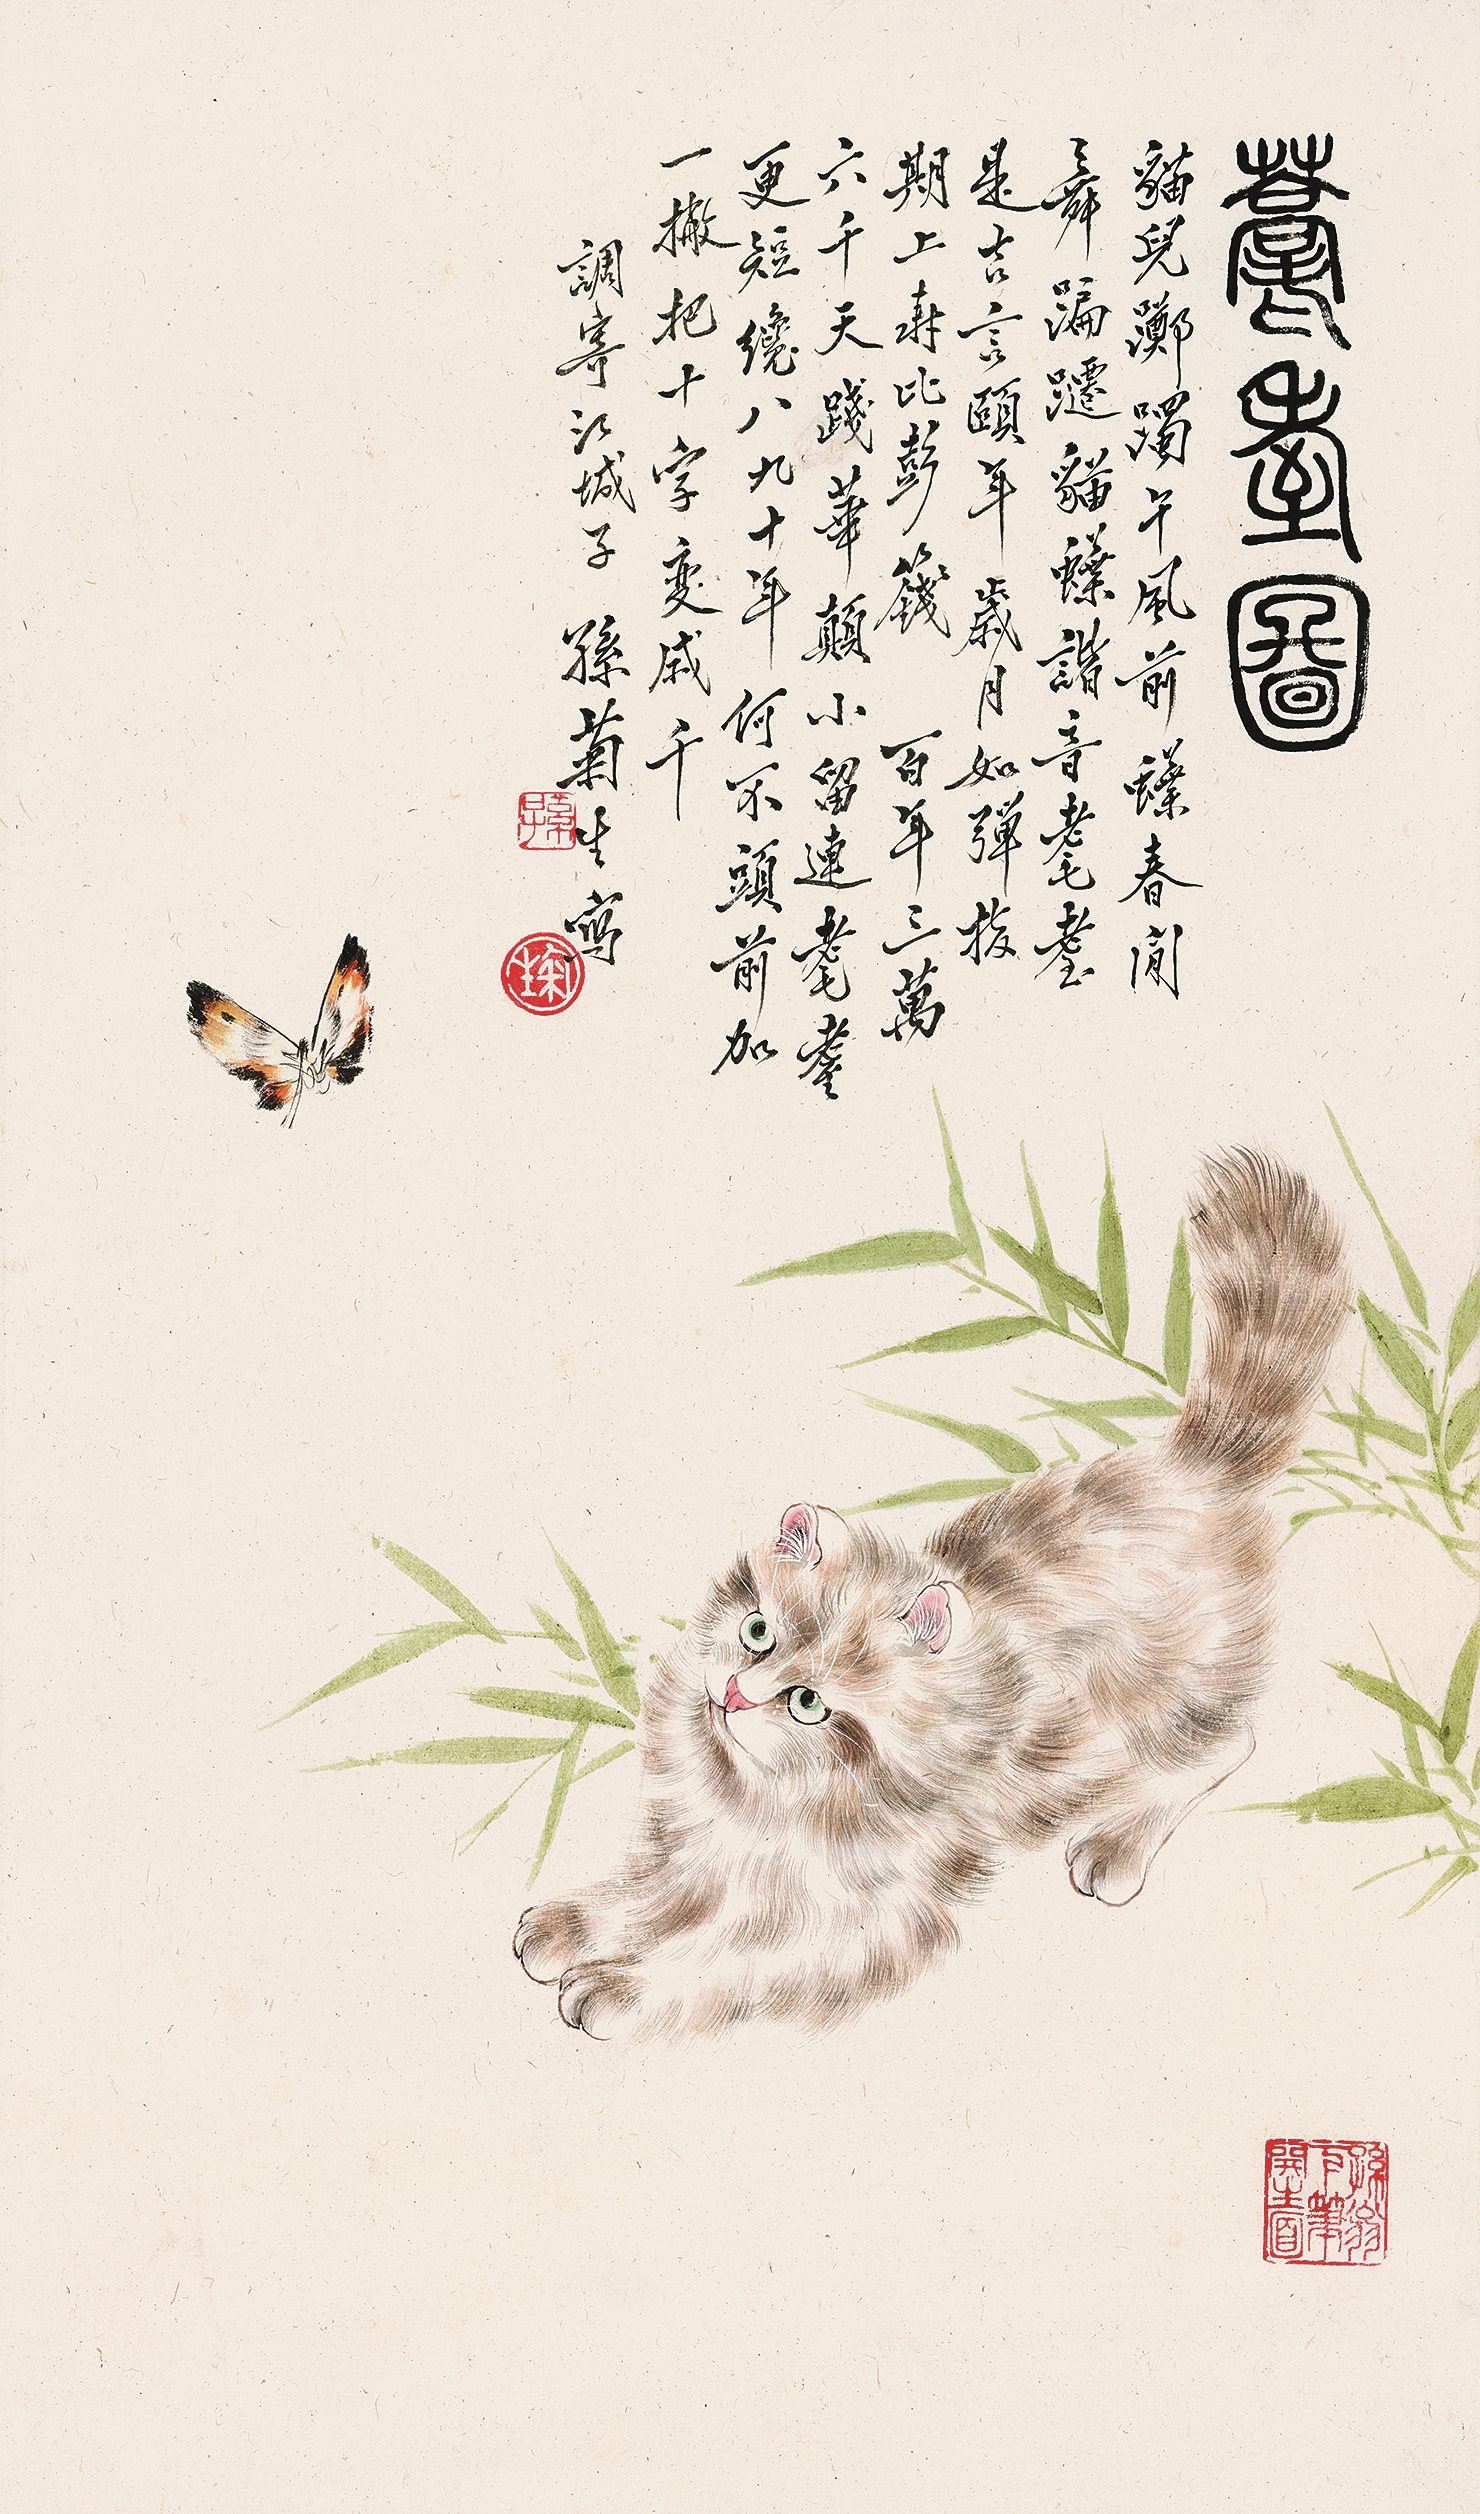 耄耋圖
貓兒躑躅午風前蝶春閒
舞蹁躚貓蝶諧音耄耋
是吉言頤年歲月如彈指
期上壽比彭籛百年三萬
六千天踐華顛小留連耄耋
更短纔八九十年何不頭前加
一撇把十字變成千
調寄江城子孫菊生寫
孫